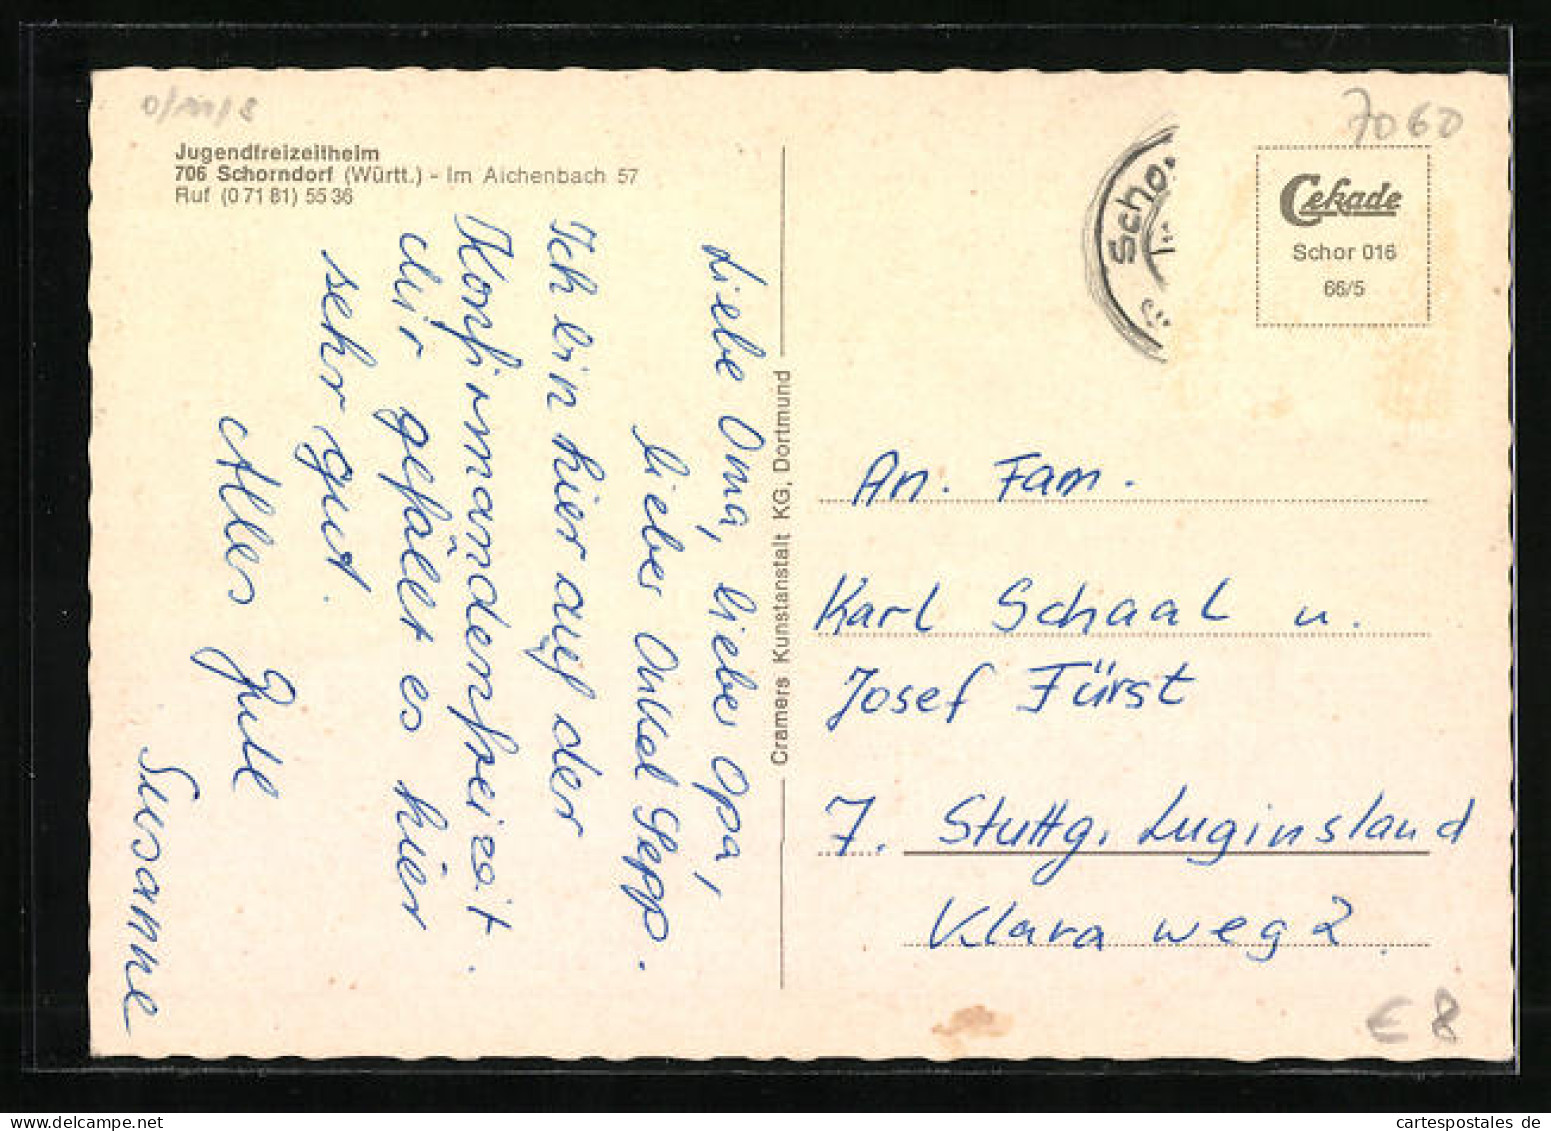 0/11/8
Jugendfreizeitheim
706 Schorndorf (Württ.) - Im Aichenbach 57
Ruf (0 71 81) 55 36
Liebe Oma, lieber Opa,
lieber Onkel Sepp.
Ich bin hier auf der
Konfirmandenfreizeit.
Mir gefällt es hier
sehr gut.
Alles Gute
Susanne
Cramers Kunstanstalt KG, Dortmund
Scho
7060
Cekade
Schor 016
66/5
An. Fam.
Karl Schaal u.
Josef Fürst
7. Stuttg. Luginsland
Klara weg 2.
€ 8
cartespostales de